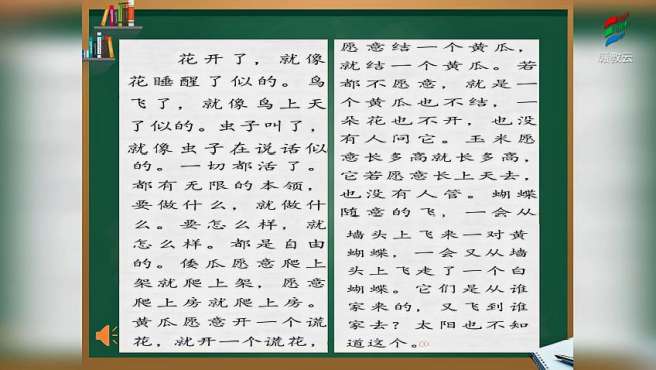 花开了，就像
花睡醒了似的。鸟
飞了，就像鸟上天
了似的。虫子叫了，
就像虫子在说话似
的。一切都活了。
都有无限的本领，
要做什么，就做什
么。要怎么样，就
怎么样。都是自由
的。倭瓜愿意爬上
架就爬上架，愿意
爬上房就爬上房。
黄瓜愿意开一个谎
花，就开一个谎花，
愿意结一个黄瓜，
就结一个黄瓜。若
都不愿意，就是一
个黄瓜也不结，一
朵花也不开，也没
有人问它。玉米愿
意长多高就长多高，
它若愿意长上天去，
也没有人管。蝴蝶
随意的飞，一会从
墙头上飞来一对黄
蝴蝶，一会又从墙
头上飞走了一个白
蝴蝶。它们是从谁
家来的，又飞到谁
家去？太阳也不知
道这个。